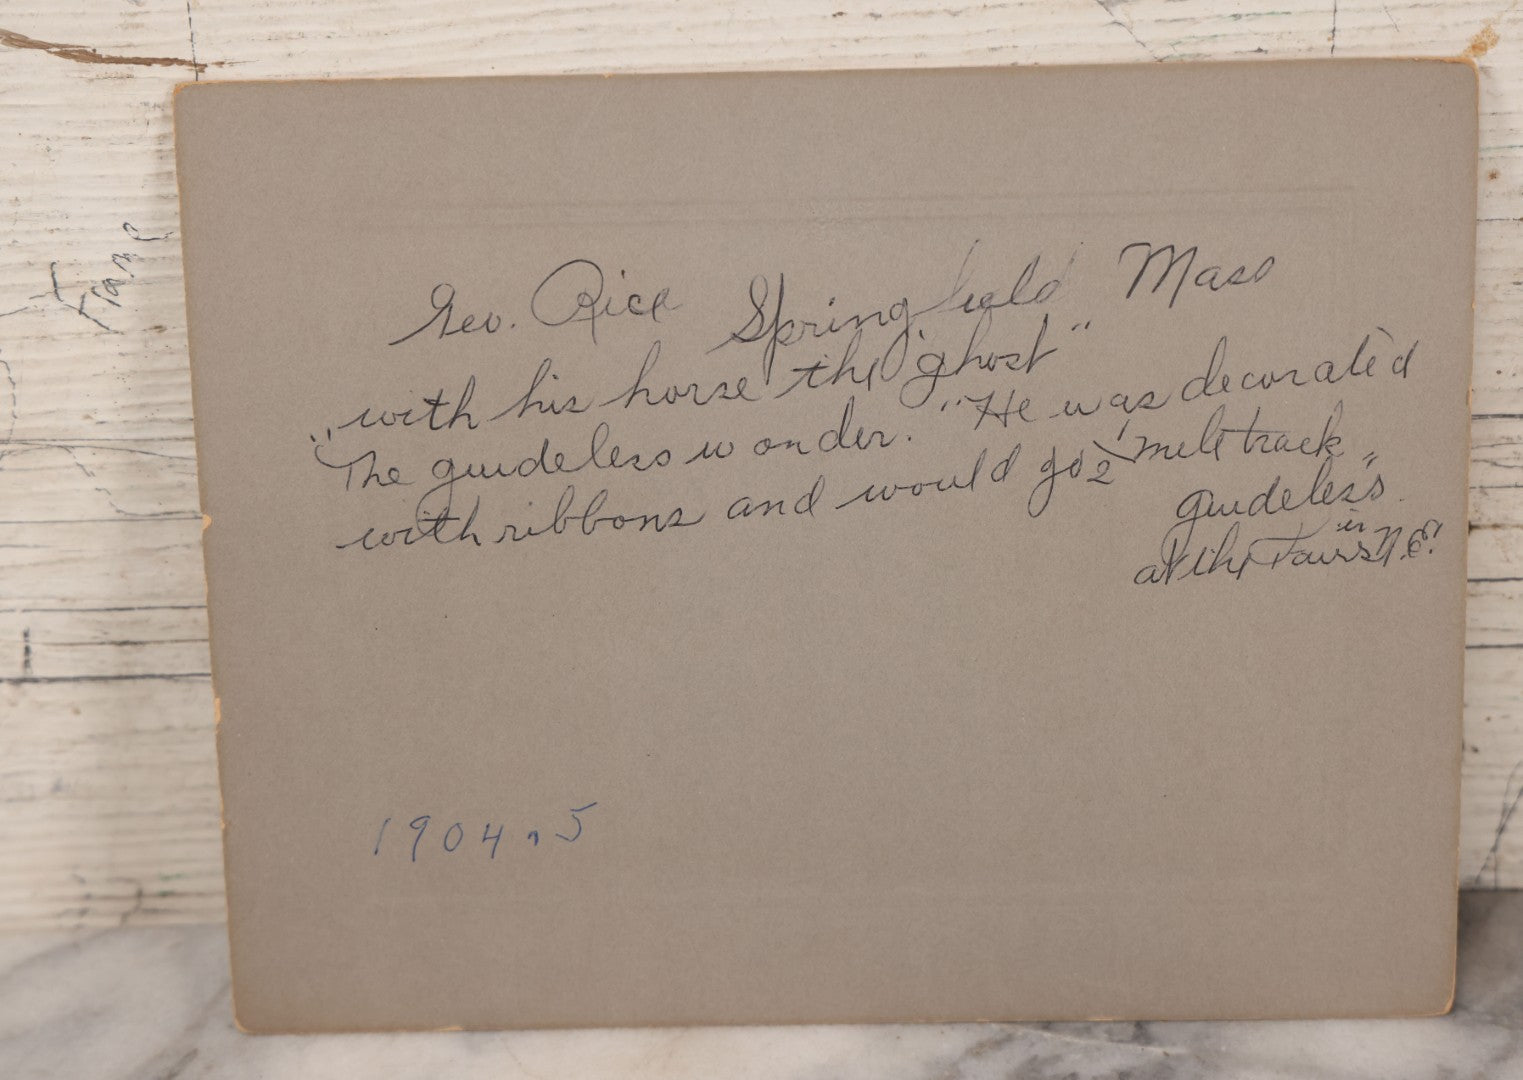 Geo. Rice Springfield Mass
with his horse the "ghost"
"The guideless wonder." He was decorated
with ribbons and would go ½ mile track
"guideless"
at the Fairs in N.E.
1904.5